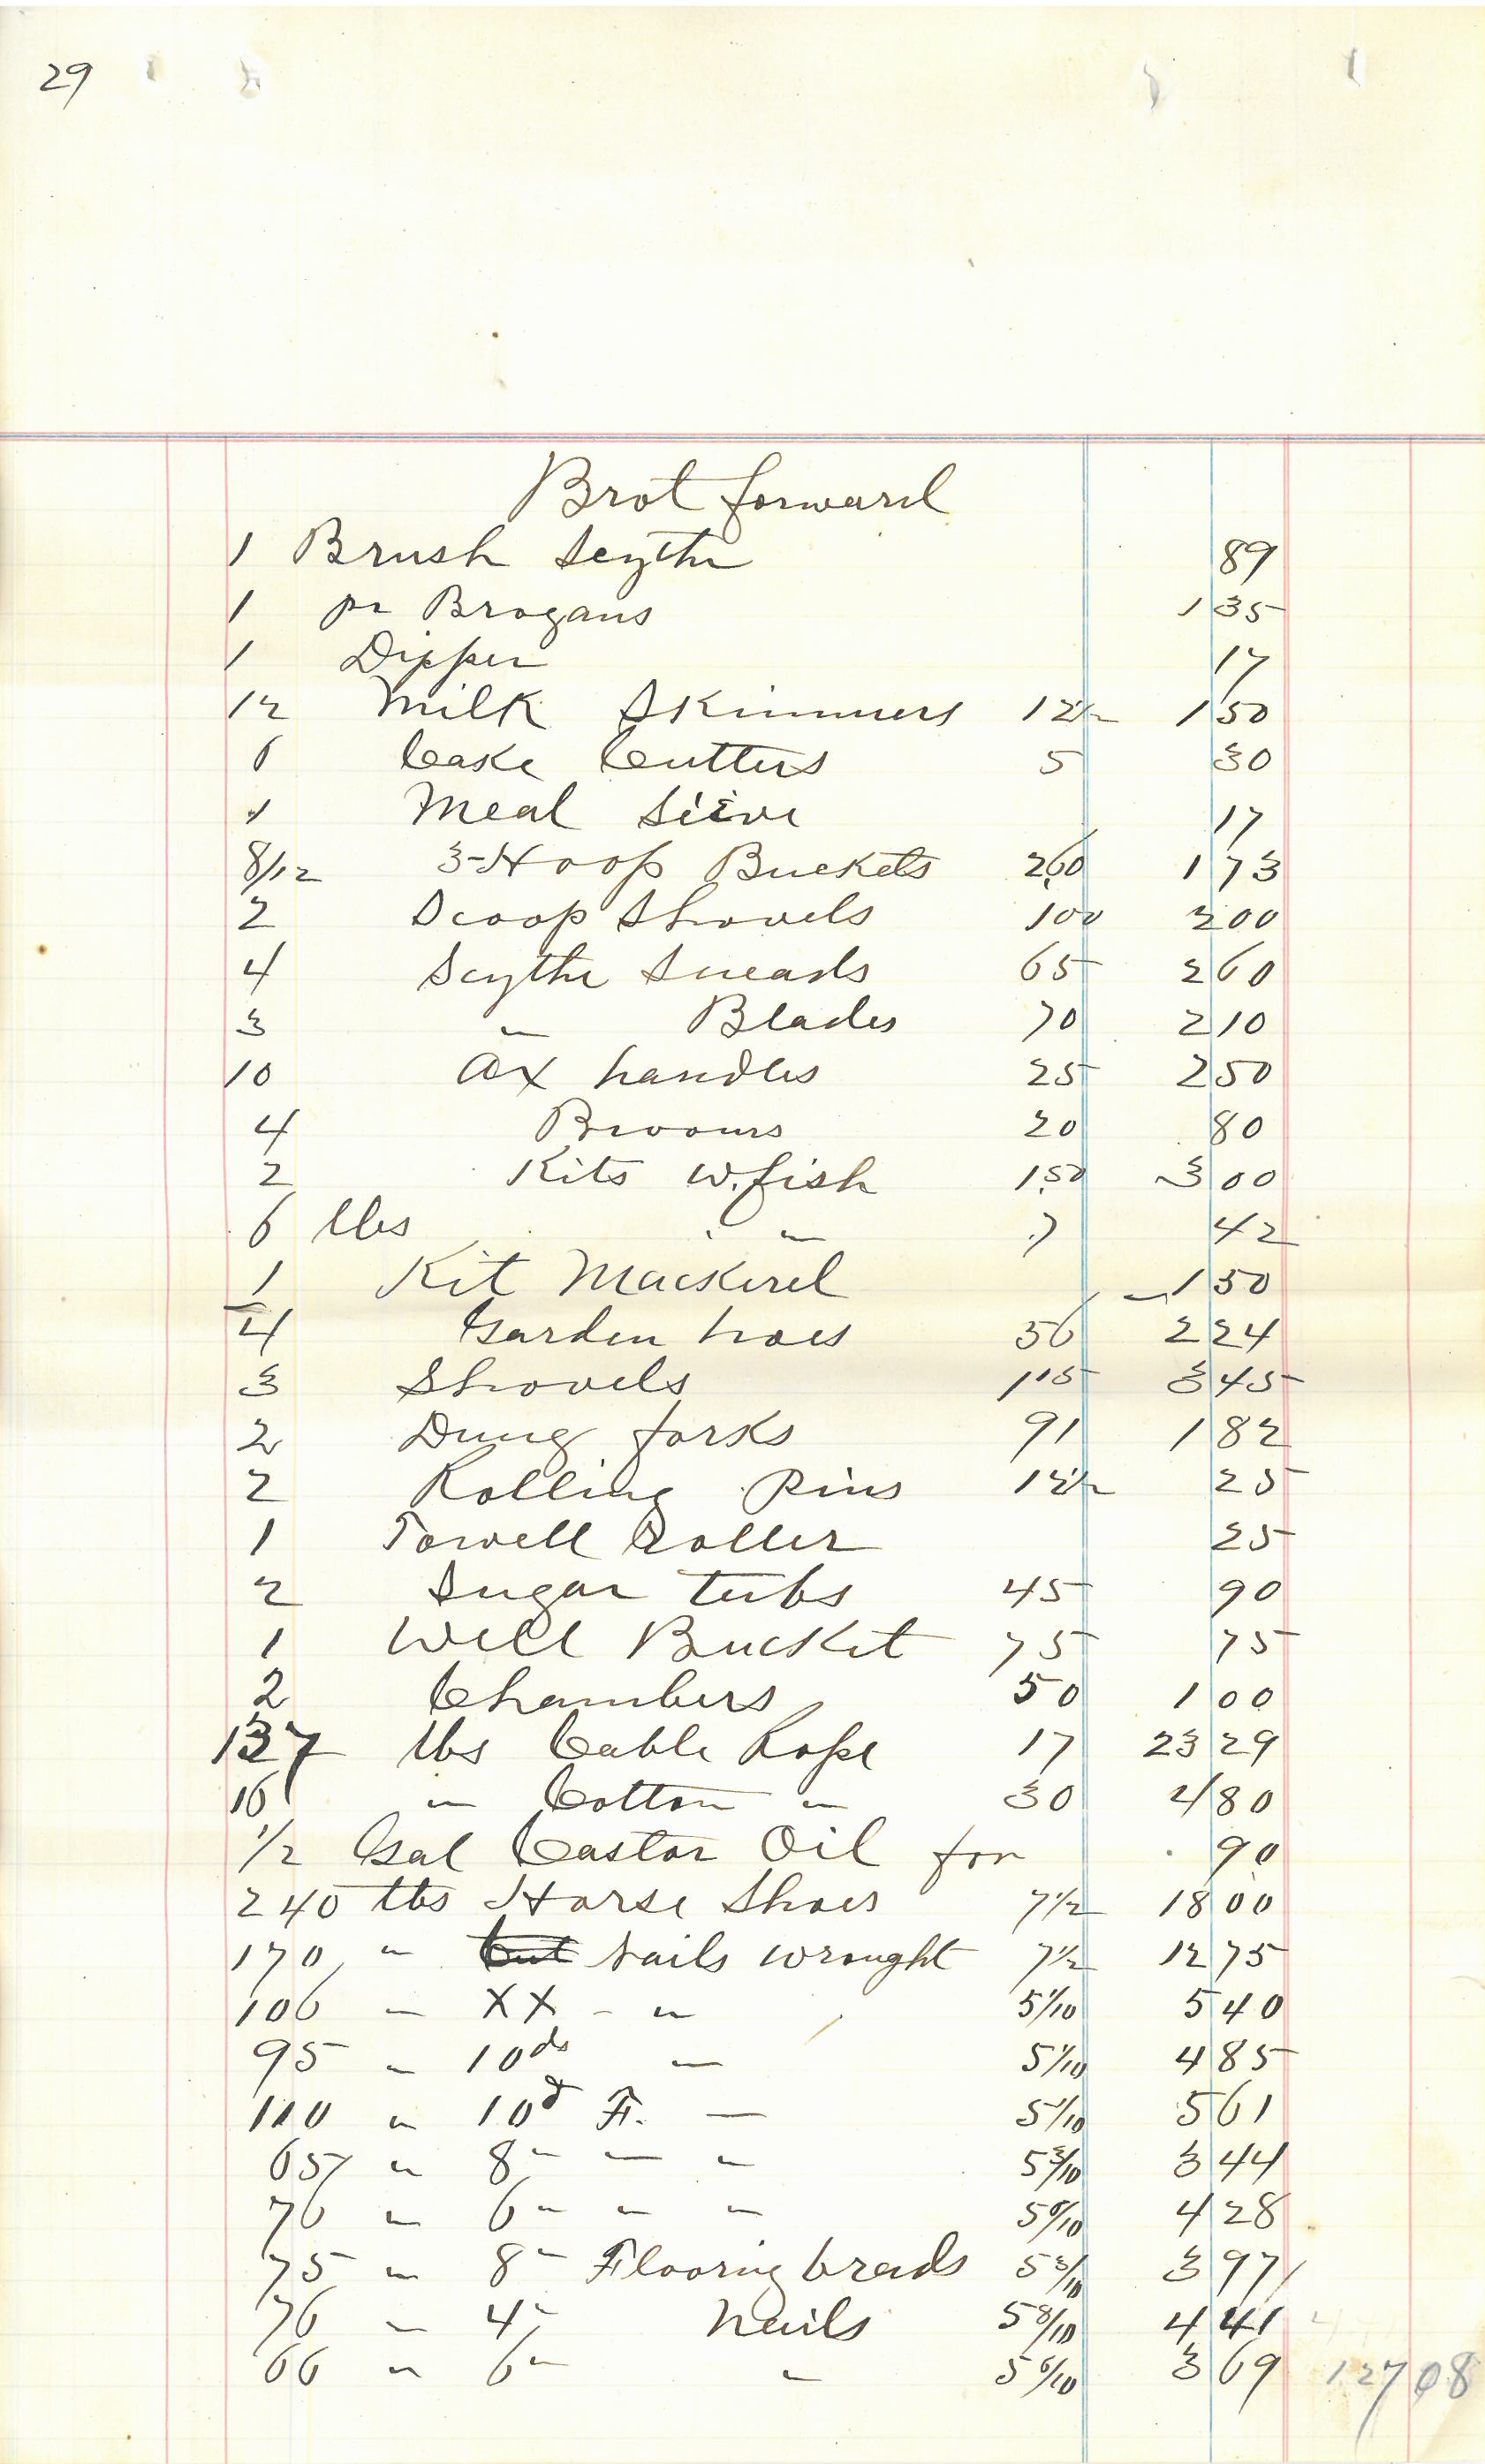 29
Brot forward
1 Brush Scythe 89
1 pr Brogans 1 35
1 Dipper 17
12 Milk Skimmers 12½ 1 50
6 Cake Cutters 5 30
1 Meal Sieve 17
8/12 3-Hoop Buckets 2.60 1 73
2 Scoop Shovels 100 2 00
4 Scythe Sneads 65 2 60
3 " Blades 70 2 10
10 Ax handles 25 2 50
4 Brooms 20 80
2 Kits W.fish 1.50 3 00
6 lbs " " 7 42
1 Kit Mackerel 1 50
4 Garden hoes 56 2 24
3 Shovels 1.15 3 45
2 Dung forks 91 1 82
2 Rolling Pins 12½ 25
1 Towell Roller 25
2 Sugar tubs 45 90
1 Well Bucket 75 75
2 Chambers 50 1 00
137 lbs Cable Rope 17 23 29
16 " Cotton " 30 4 80
1/2 Gal Castor Oil for 90
240 lbs Horse Shoes 7½ 18 00
170 " Cut Nails wrought 7½ 12 75
106 " XX - " 5 1/10 5 40
95 " 10ds " 5 1/10 4 85
110 " 10d F. — 5 1/10 5 61
65 " 8 " — " 5 3/10 3 44
76 " 6 " " " 5 6/10 4 28
75 " 8 " Flooring brads 5 3/10 3 97
76 " 4 " Nails 5 8/10 4 41
66 " 6 " " 5 6/10 3 69 127 08